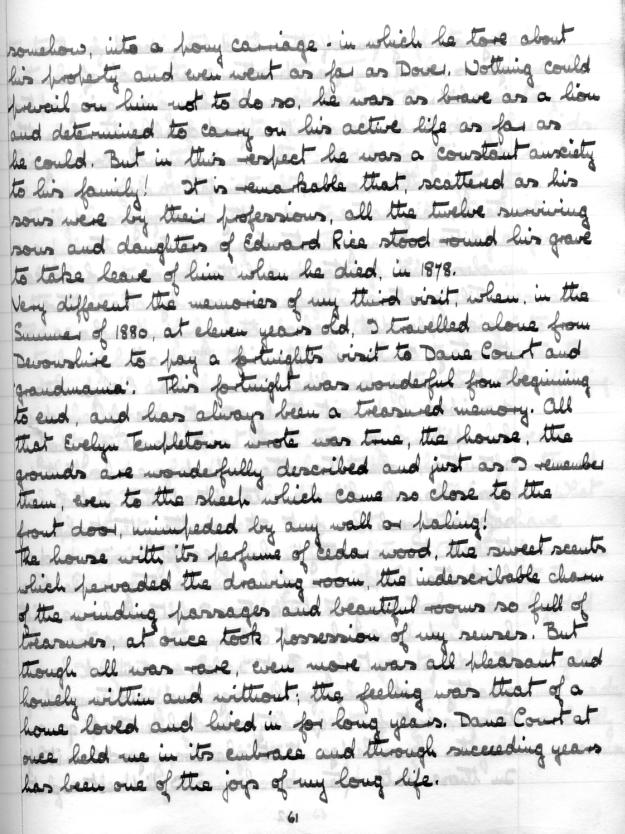 somehow, into a pony carriage - in which he tore about
his property and even went as far as Dover. Nothing could
prevail on him not to do so, he was as brave as a lion
and determined to carry on his active life as far as
he could. But in this respect he was a constant anxiety
to his family! It is remarkable that, scattered as his
sons were by their professions, all the twelve surviving
sons and daughters of Edward Rice stood round his grave
to take leave of him when he died, in 1878.
Very different the memories of my third visit, when, in the
Summer of 1880, at eleven years old, I travelled alone from
Devonshire to pay a fortnights visit to Dane Court and
'grandmama'. This fortnight was wonderful from beginning
to end, and has always been a treasured memory. All
that Evelyn Templetown wrote was true, the house, the
grounds are wonderfully described and just as I remember
them, even to the sheep which came so close to the
front door, unimpeded by any wall or paling!
The house with its perfume of cedar wood, the sweet scents
which pervaded the drawing-room, the indescribable charm
of the winding passages and beautiful rooms so full of
treasures, at once took possession of my senses. But
though all was rare, even more was all pleasant and
homely within and without; the feeling was that of a
home loved and lived in for long years. Dane Court at
once held me in its embrace and through succeeding years
has been one of the joys of my long life.
61